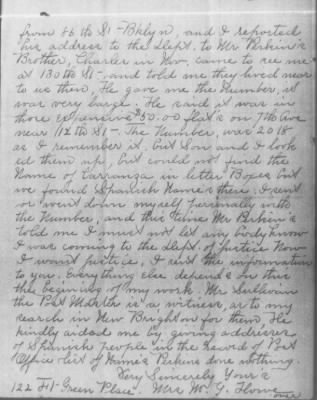 from 86th St - Bklyn, and I reported
his address to the Dept. to Mr Perkins's
Brother, Charles in Nov. came to see me
at 130th St - and told me they lived near
to us then, He gave me the Number, it
was very large - He said it was in
those expensive $50.00 flat's on 7th Ave
near 112th St - The Number was 2018
as I remember it, but Son and I look
ed them up, but could not find the
Name of Carranza in letter Boxes but
we found Spanish Name's there, I sent
or went down myself personally with
the Number, and this time Mr Perkin's
told me I must not let any body know
I was coming to the Dept of Justice Now
I want justice, I sent the information
to you. Everything else depends on this
the beginning of my work. Mr Sullivan
the Post Master is a witness, as to my
search in New Brighton for them He
kindly aided me by giving addresses
of Spanish people in the Record of Post
Office list of Name's Perkins done nothing.
Very Sincerely Your's
122 Ft - Green Place. Mrs. Wm. G. Flowe
over